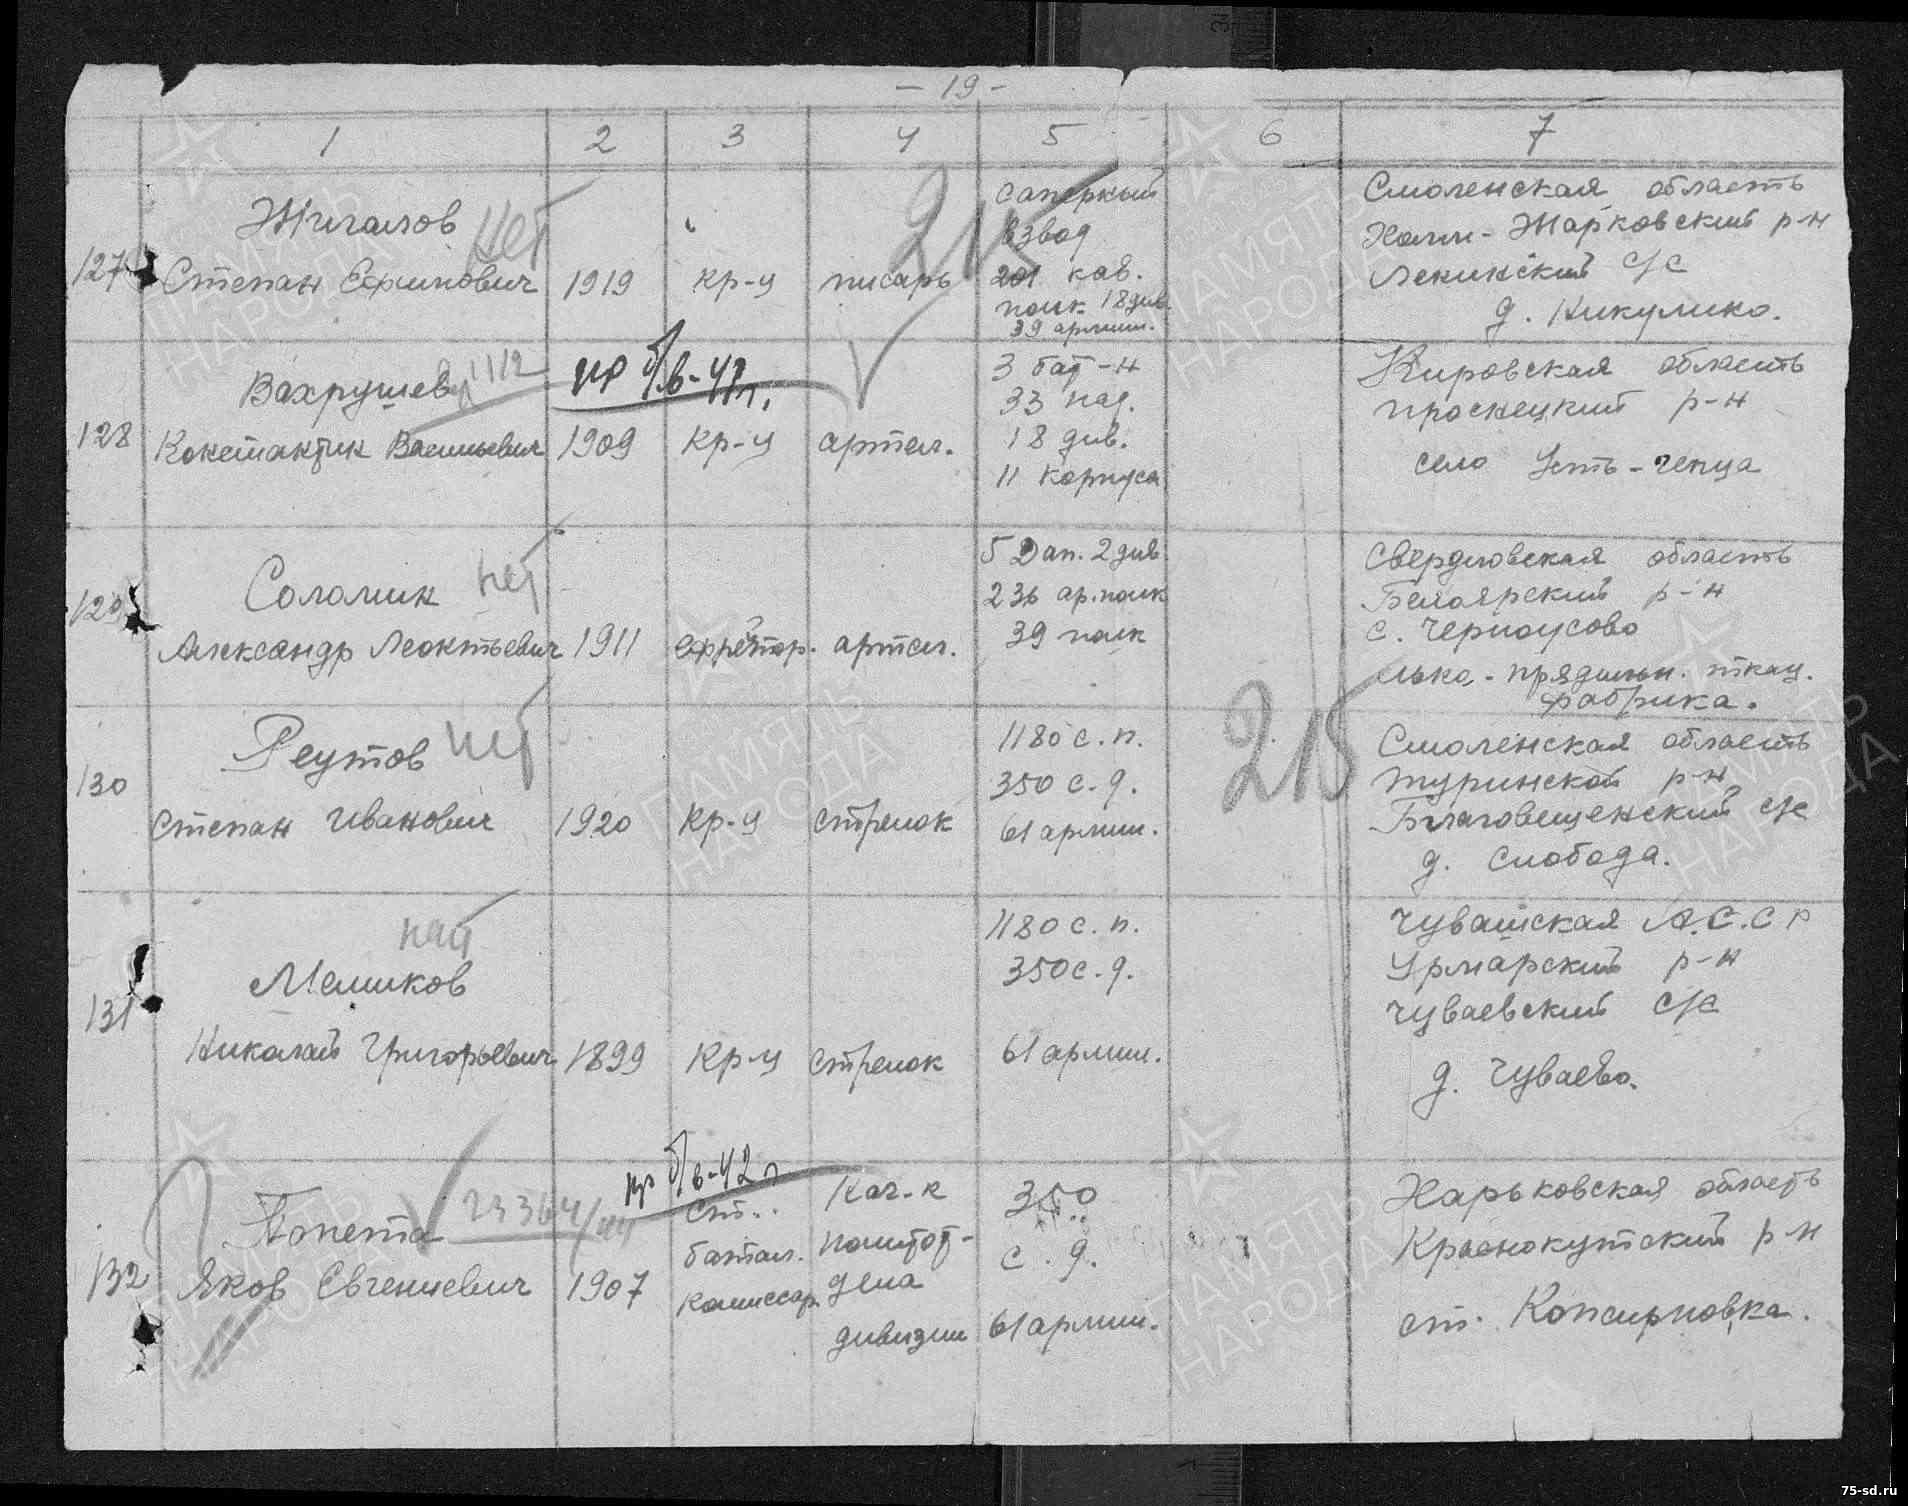 - 19 -
1 2 3 4 5 6 7
127
Жигалов
нет
Степан Ефимович
1919
кр-ц
писарь
саперный
взвод
201 кав.
полк 18 див.
39 армии.
Смоленская область
Холм-Жарковский р-н
Ленинский с/с
д. Никулино.
215
128
Вахрушев
Константин Васильевич
пр б/в-42г.
1909
кр-ц
артил.
3 бат-н
33 пад.
18 див.
11 корпуса
Кировская область
Просницкий р-н
село Усть-чепца
129
Соломин
нет
Александр Леонтьевич
1911
ефрейтор.
артил.
5 Дап. 2 див
236 ар. полк
39 полк
Свердловская область
Белоярский р-н
с. Черноусово
льно-прядильн. ткац.
фабрика.
130
Реутов
нет
Степан Иванович
1920
кр-ц
стрелок
1180 с.п.
350 с.д.
61 армии.
215
Смоленская область
Туринской р-н
Благовещенский с/с
д. Слобода.
131
нет
Мешков
Николай Григорьевич
1899
кр-ц
стрелок
1180 с.п.
350 с.д.
61 армии.
Чувашская А.С.С Р
Урмарский р-н
Чуваевский с/с
д. Чуваево.
132
Лопета
Яков Евгениевич
пр б/в-42 г
1907
ст.
батал.
комиссар.
Нач-к
политот-
дела
дивизии
350
с.д.
61 армии.
Харьковская область
Краснокутский р-н
ст.
ПАМЯТЬ
НАРОДА
75-sd.ru